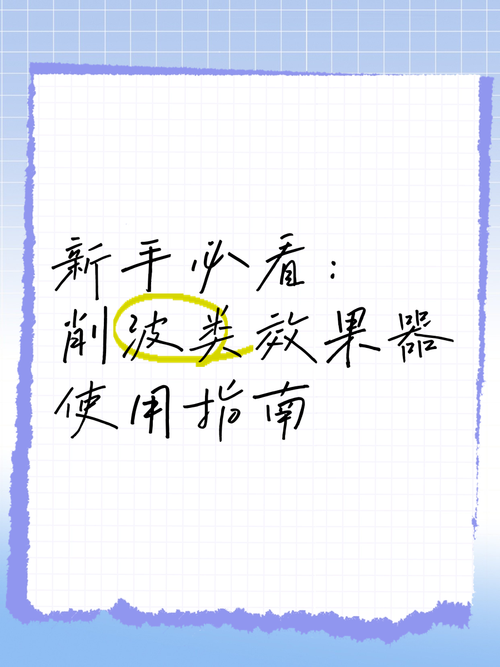 新手必看：
削波类效果器
使用指南